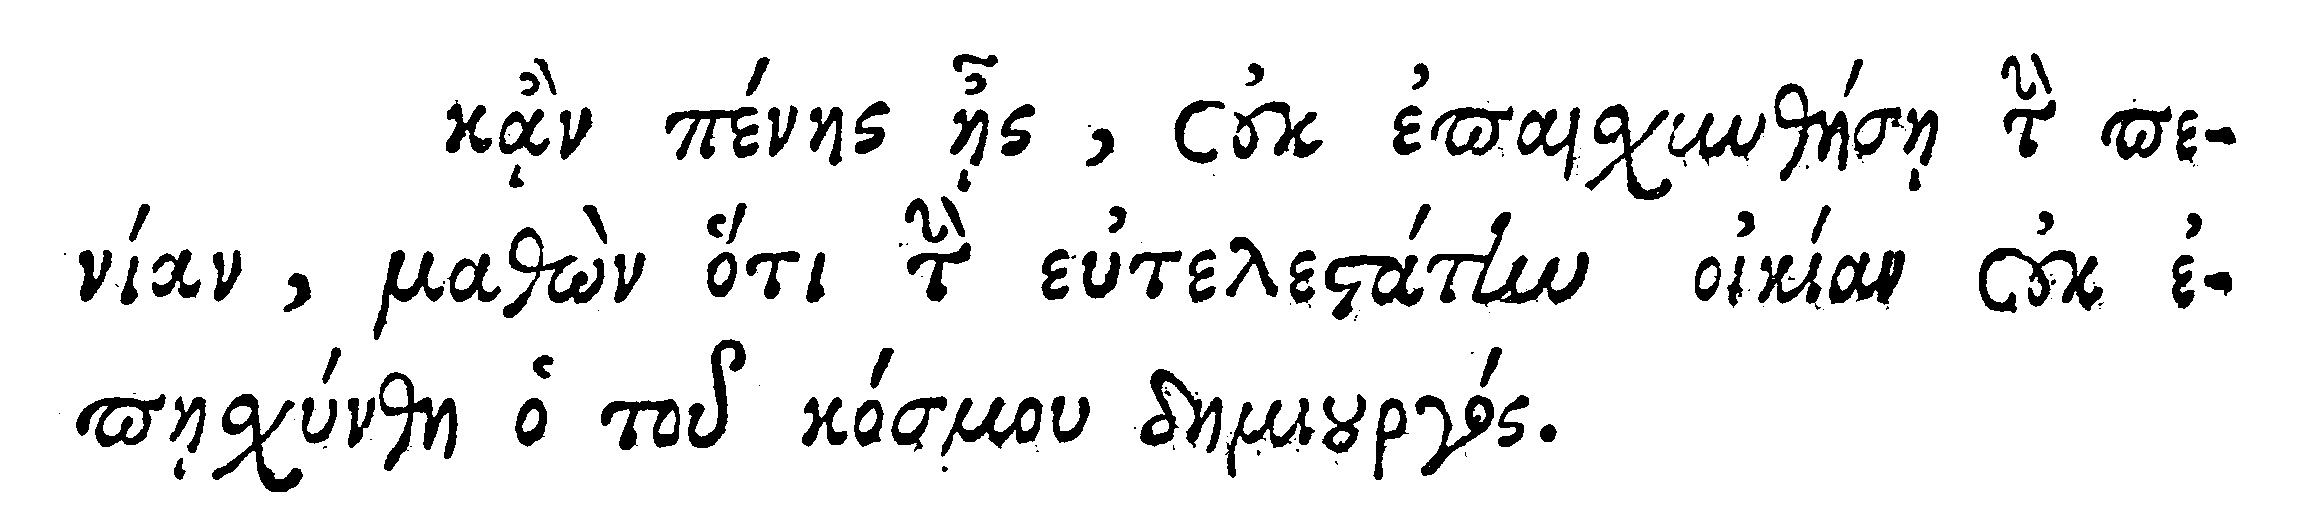 κᾂν πένης ᾖς, οὐκ ἐπαισχυνθήσῃ τὴν πε-
νίαν, μαθὼν ὅτι τὴν εὐτελεστάτην οἰκίαν οὐκ ἐ-
πῃσχύνθη ὁ τοῦ κόσμου δημιουργός.